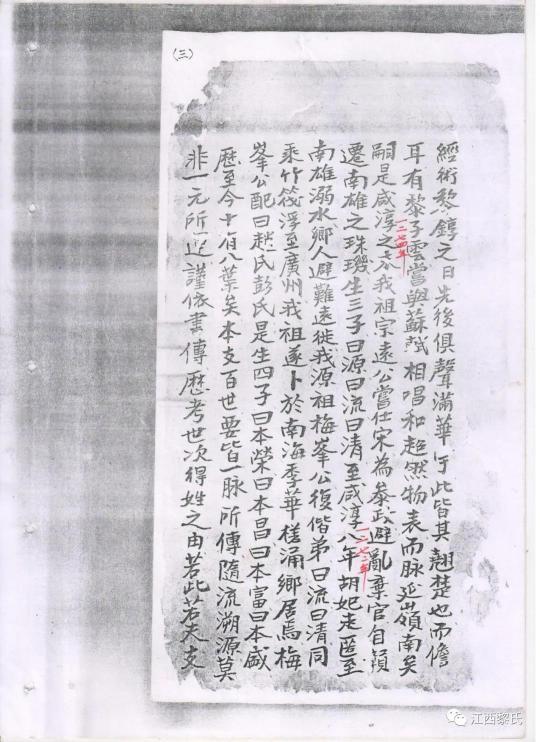 (三)
經術黎錞之日先後俱聲滿華宇此皆其翹楚也而儋
耳有黎子雲嘗與蘇軾相唱和超然物表而脉延嶺南矣
嗣是咸淳之我祖宗遠公嘗仕宋為叅政避亂棄官自
一二七四年
遷南雄之珠璣生三子曰源曰流曰清至咸淳八年胡妃走匿至
一二七二年
南雄溺水鄉人避難遠徙我源祖梅峯公復偕弟曰流曰清同
乘竹筏浮至廣州我祖遂卜於南海季華槎涌鄉居焉梅
峯公配曰趙氏彭氏是生四子曰本榮曰本昌曰本富曰本盛
歷至今十有八葉矣本支百世要皆一脉所傳隨流溯源莫
非一元所謹依書傳歷考世次得姓之由若此若夫支
江西黎氏